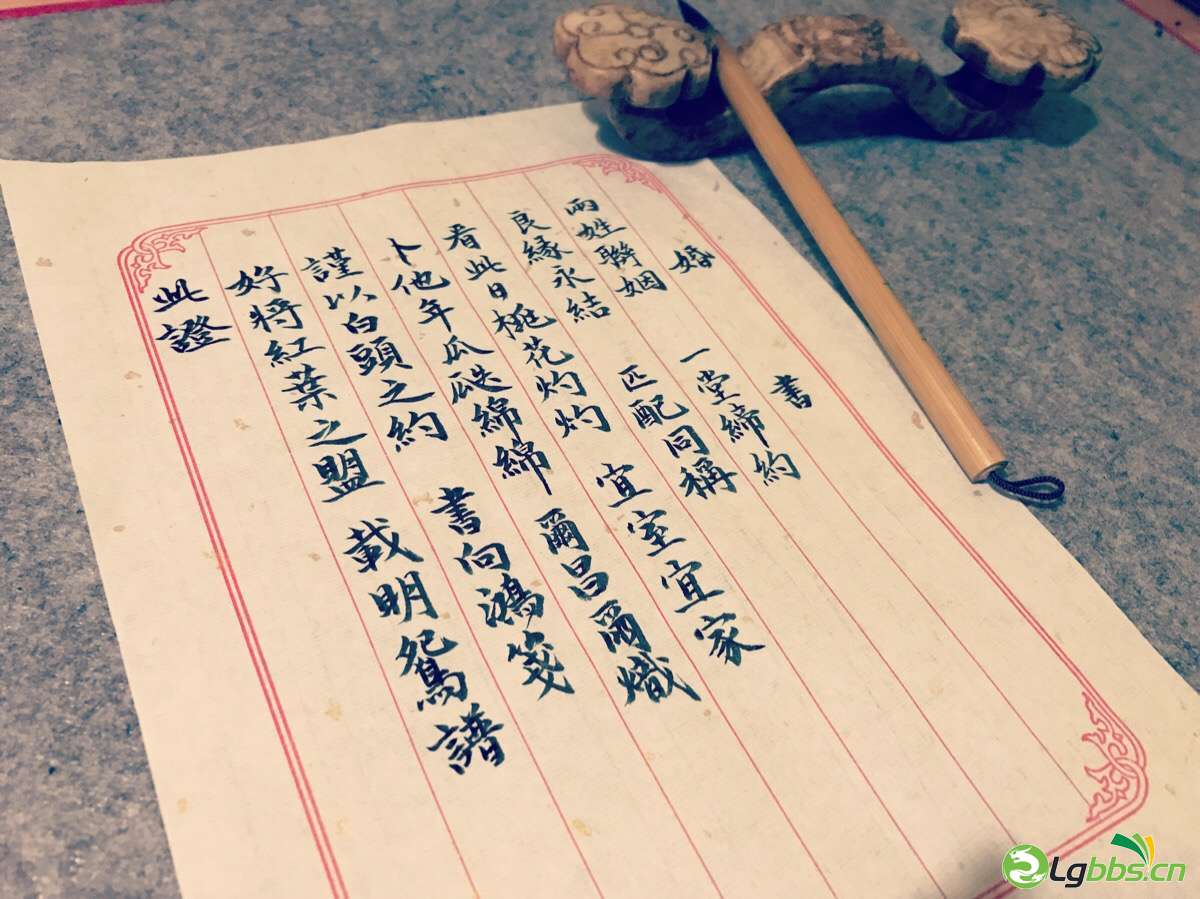 婚 書
兩姓聯姻 一堂締約
良緣永結 匹配同稱
看此日桃花灼灼 宜室宜家
卜他年瓜瓞綿綿 爾昌爾熾
謹以白頭之約 書向鴻箋
好將紅葉之盟 載明鴛譜
此證
Lgbbs.cn